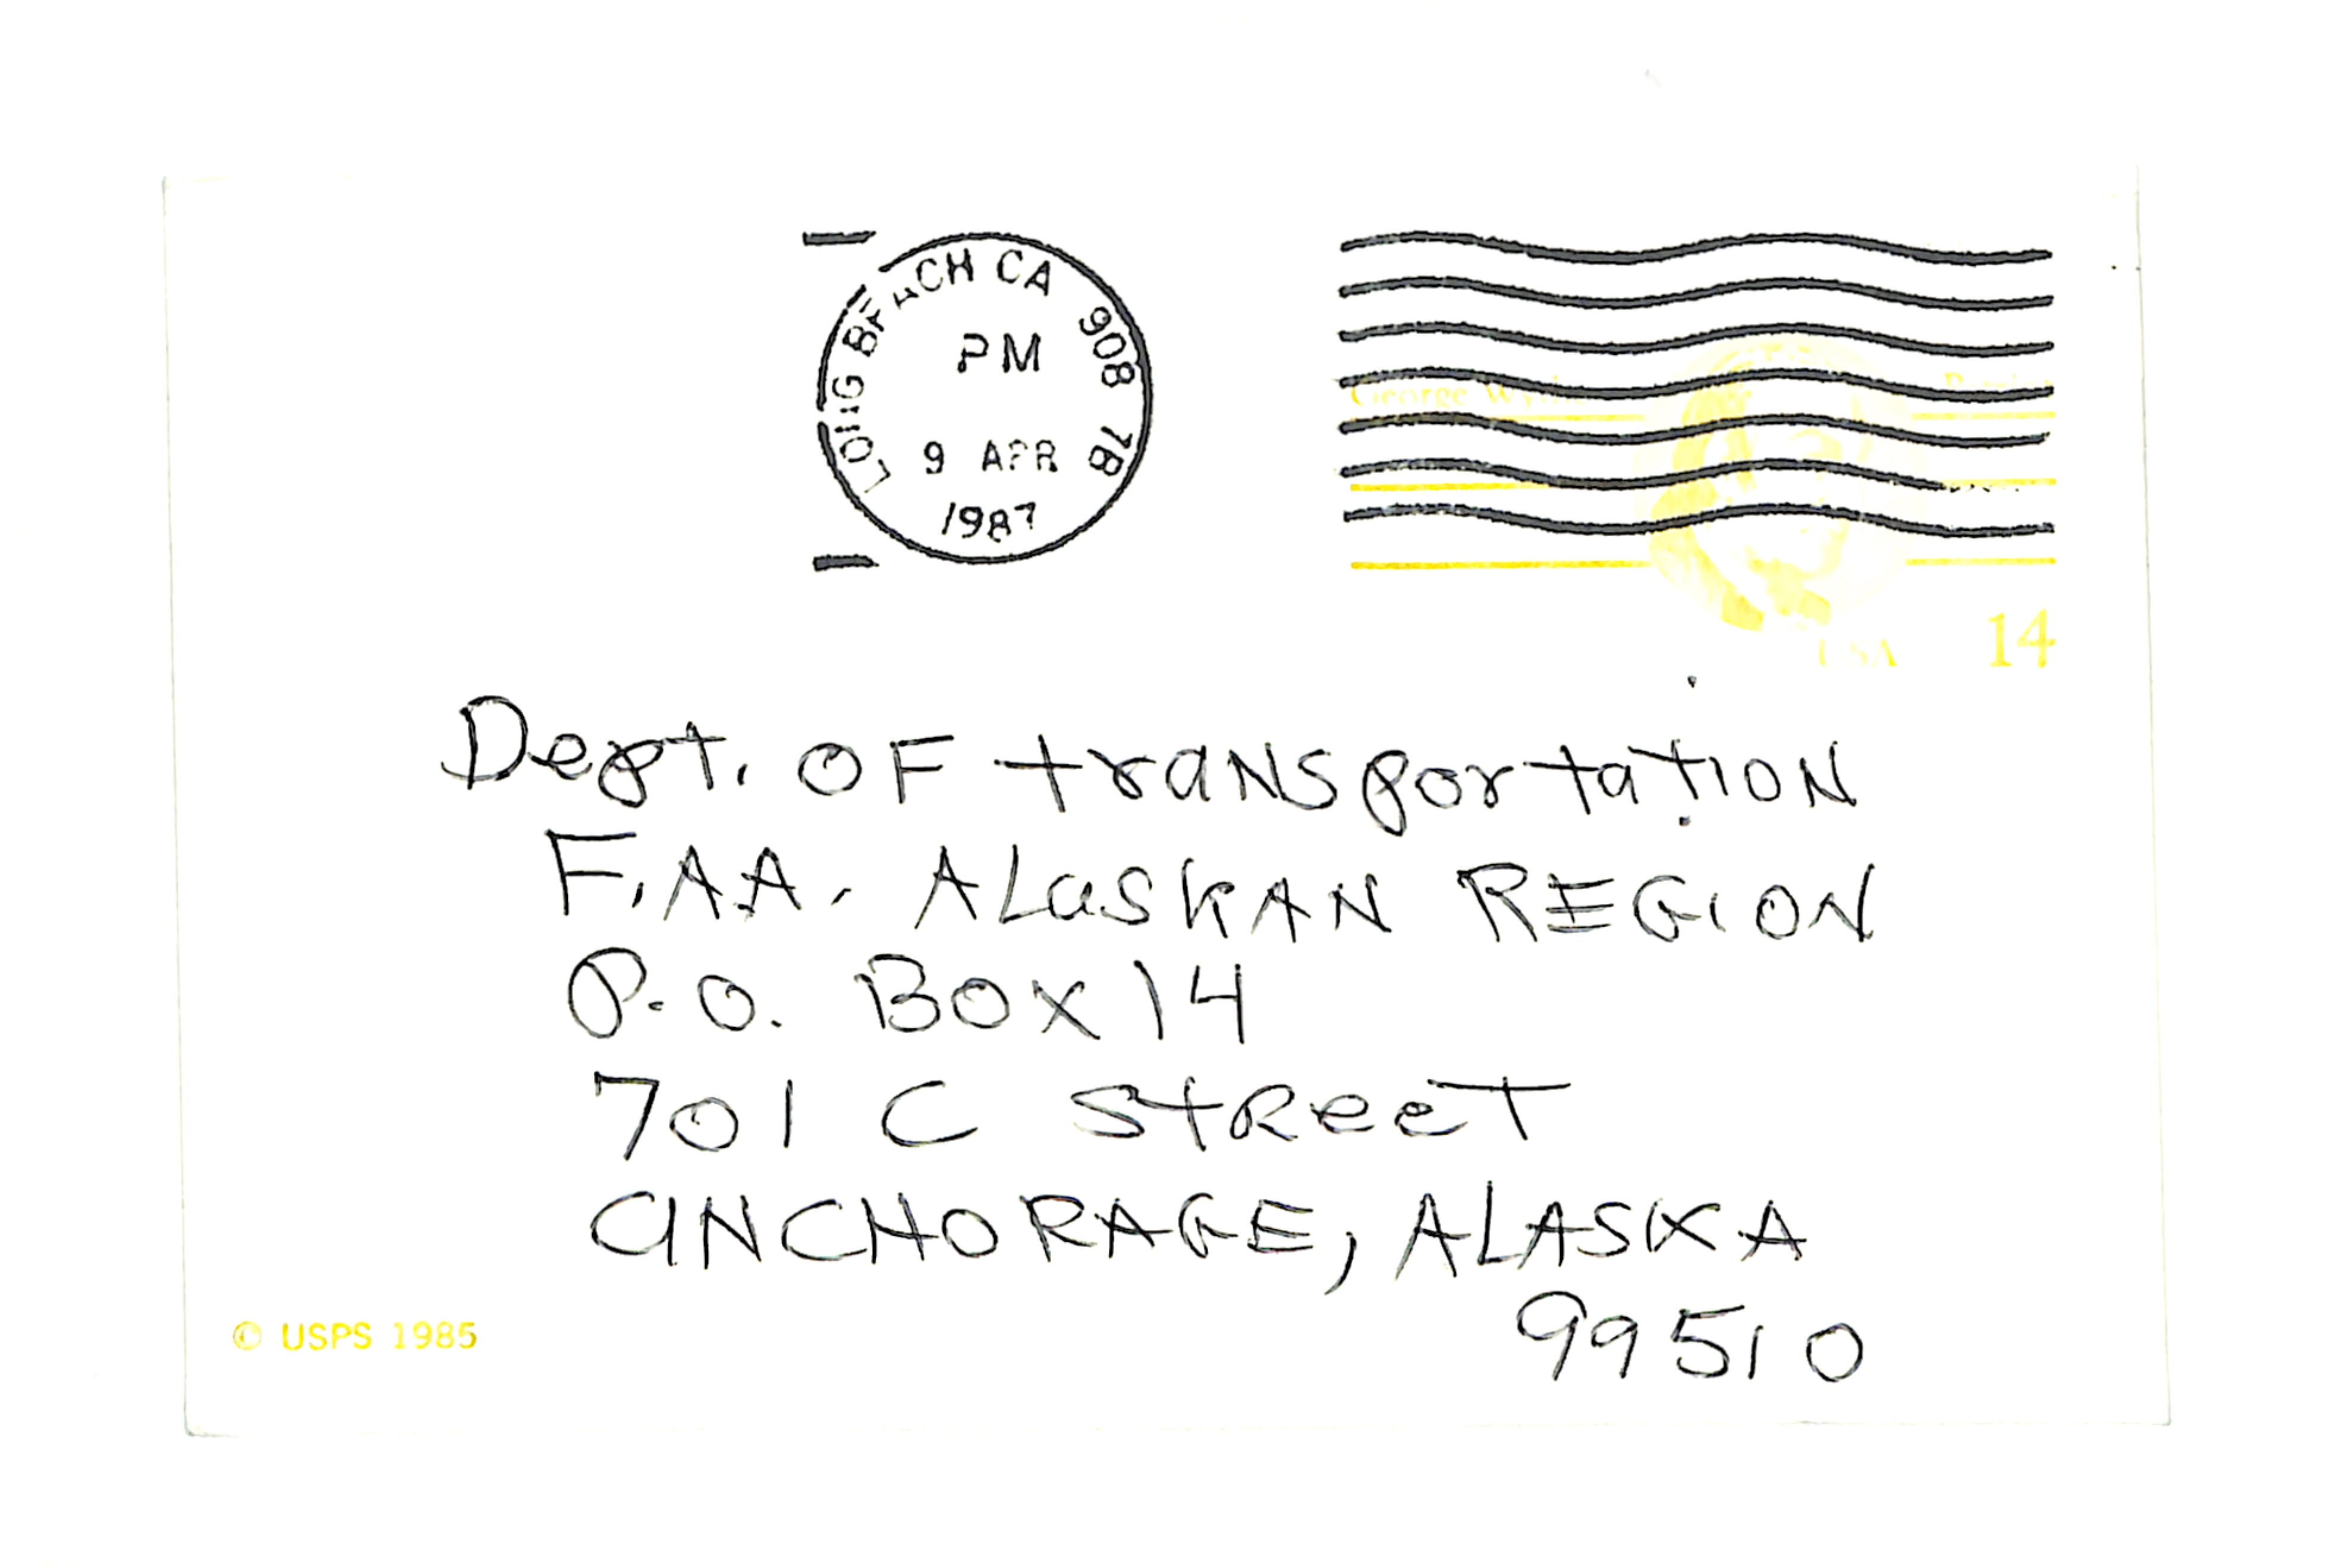 LONG BEACH CA 908 7B
PM
9 APR
1987
George Wythe
USA 14
Dept. OF transportation
F.AA. ALasKAN REGION
P.O. BOX 14
701 C StReeT
aNCHORAGE, ALASKA
99510
© USPS 1985